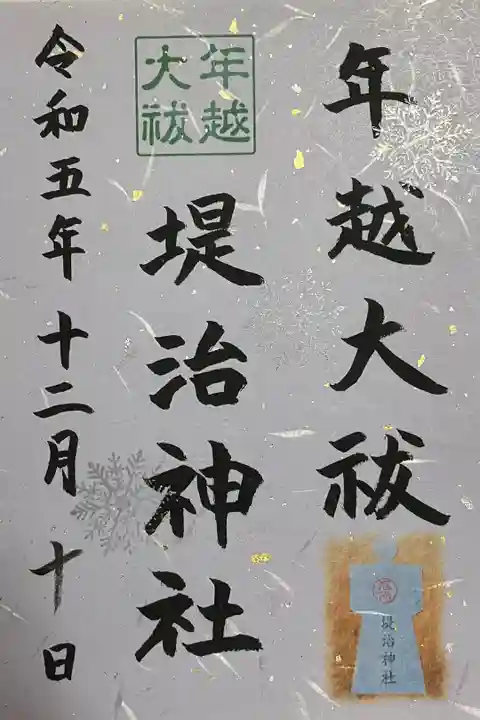 年越大祓
年越
大祓
堤治神社
令和五年十二月十日
堤治神社